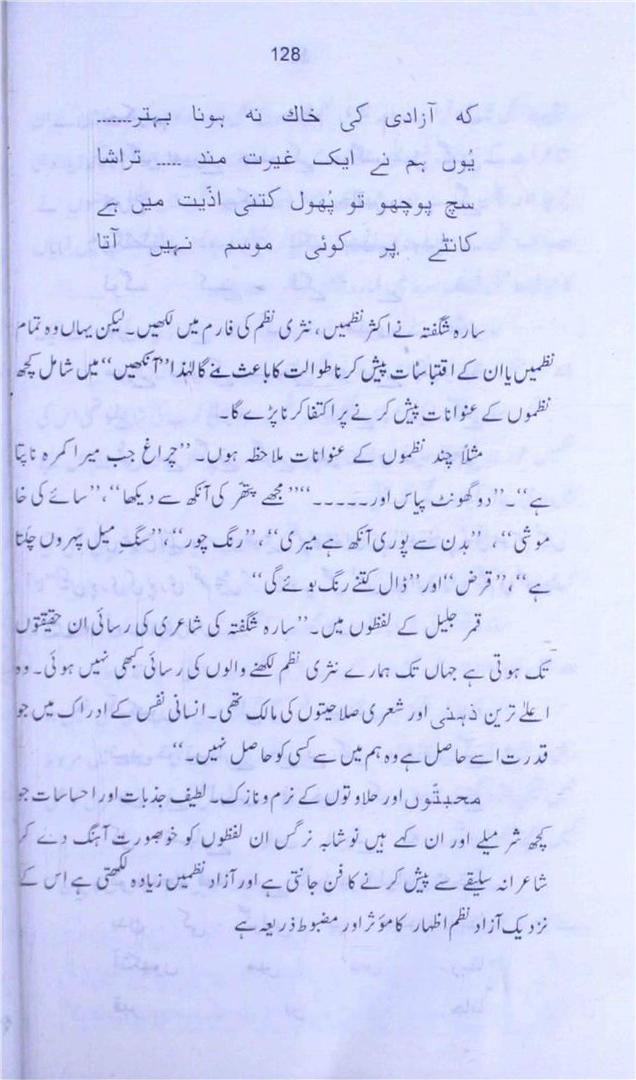 128
که آزادی کی خاك نه ہونا بہتر......
یُوں ہم نے ایک غیرت مند.... تراشا
سچ پوچھو تو پُھول کتنی اذّیت میں ہے
کانٹے پر کوئی موسم نہیں آتا
سارہ شگفتہ نے اکثر نظمیں، نثری نظم کی فارم میں لکھیں۔ لیکن یہاں وہ تمام
نظمیں یا ان کے اقتباسات پیش کرنا طوالت کا باعث بنے گا لہٰذا ”آنکھیں“ میں شامل کچھ
نظموں کے عنوانات پیش کرنے پر اکتفا کرنا پڑے گا۔
مثلاً چند نظموں کے عنوانات ملاحظہ ہوں۔ ”چراغ جب میرا کمرہ ناپتا
ہے“۔ ”دو گھونٹ پیاس اور۔۔۔۔۔“ ”مجھے پتھّر کی آنکھ سے دیکھا“، ”سائے کی خا
موشی“، ”بدن سے پوری آنکھ ہے میری“، ”رنگ چور“، ”سنگِ میل پہروں چلتا
ہے“، ”قرض“ اور ”ڈال کتنے رنگ بوئے گی“
قمر جلیل کے لفظوں میں۔ ”سارہ شگفتہ کی شاعری کی رسائی ان حقیقتوں
تک ہوتی ہے جہاں تک ہمارے نثری نظم لکھنے والوں کی رسائی کبھی نہیں ہوئی۔ وہ
اعلےٰ ترین ذہنی اور شعری صلاحیتوں کی مالک تھی۔ انسانی نفس کے ادراک میں جو
قدرت اسے حاصل ہے وہ ہم میں سے کسی کو حاصل نہیں۔“
محبتّوں اور حلاوتوں کے نرم و نازک۔ لطیف جذبات اور احساسات جو
کچھ شرمیلے اور ان کہے ہیں نوشابہ نرگس ان لفظوں کو خوبصورت آہنگ دے کر
شاعرانہ سلیقے سے پیش کرنے کا فن جانتی ہے اور آزاد نظمیں زیادہ لکھتی ہے اس کے
نزدیک آزاد نظم اظہار کا مؤثر اور مضبوط ذریعہ ہے